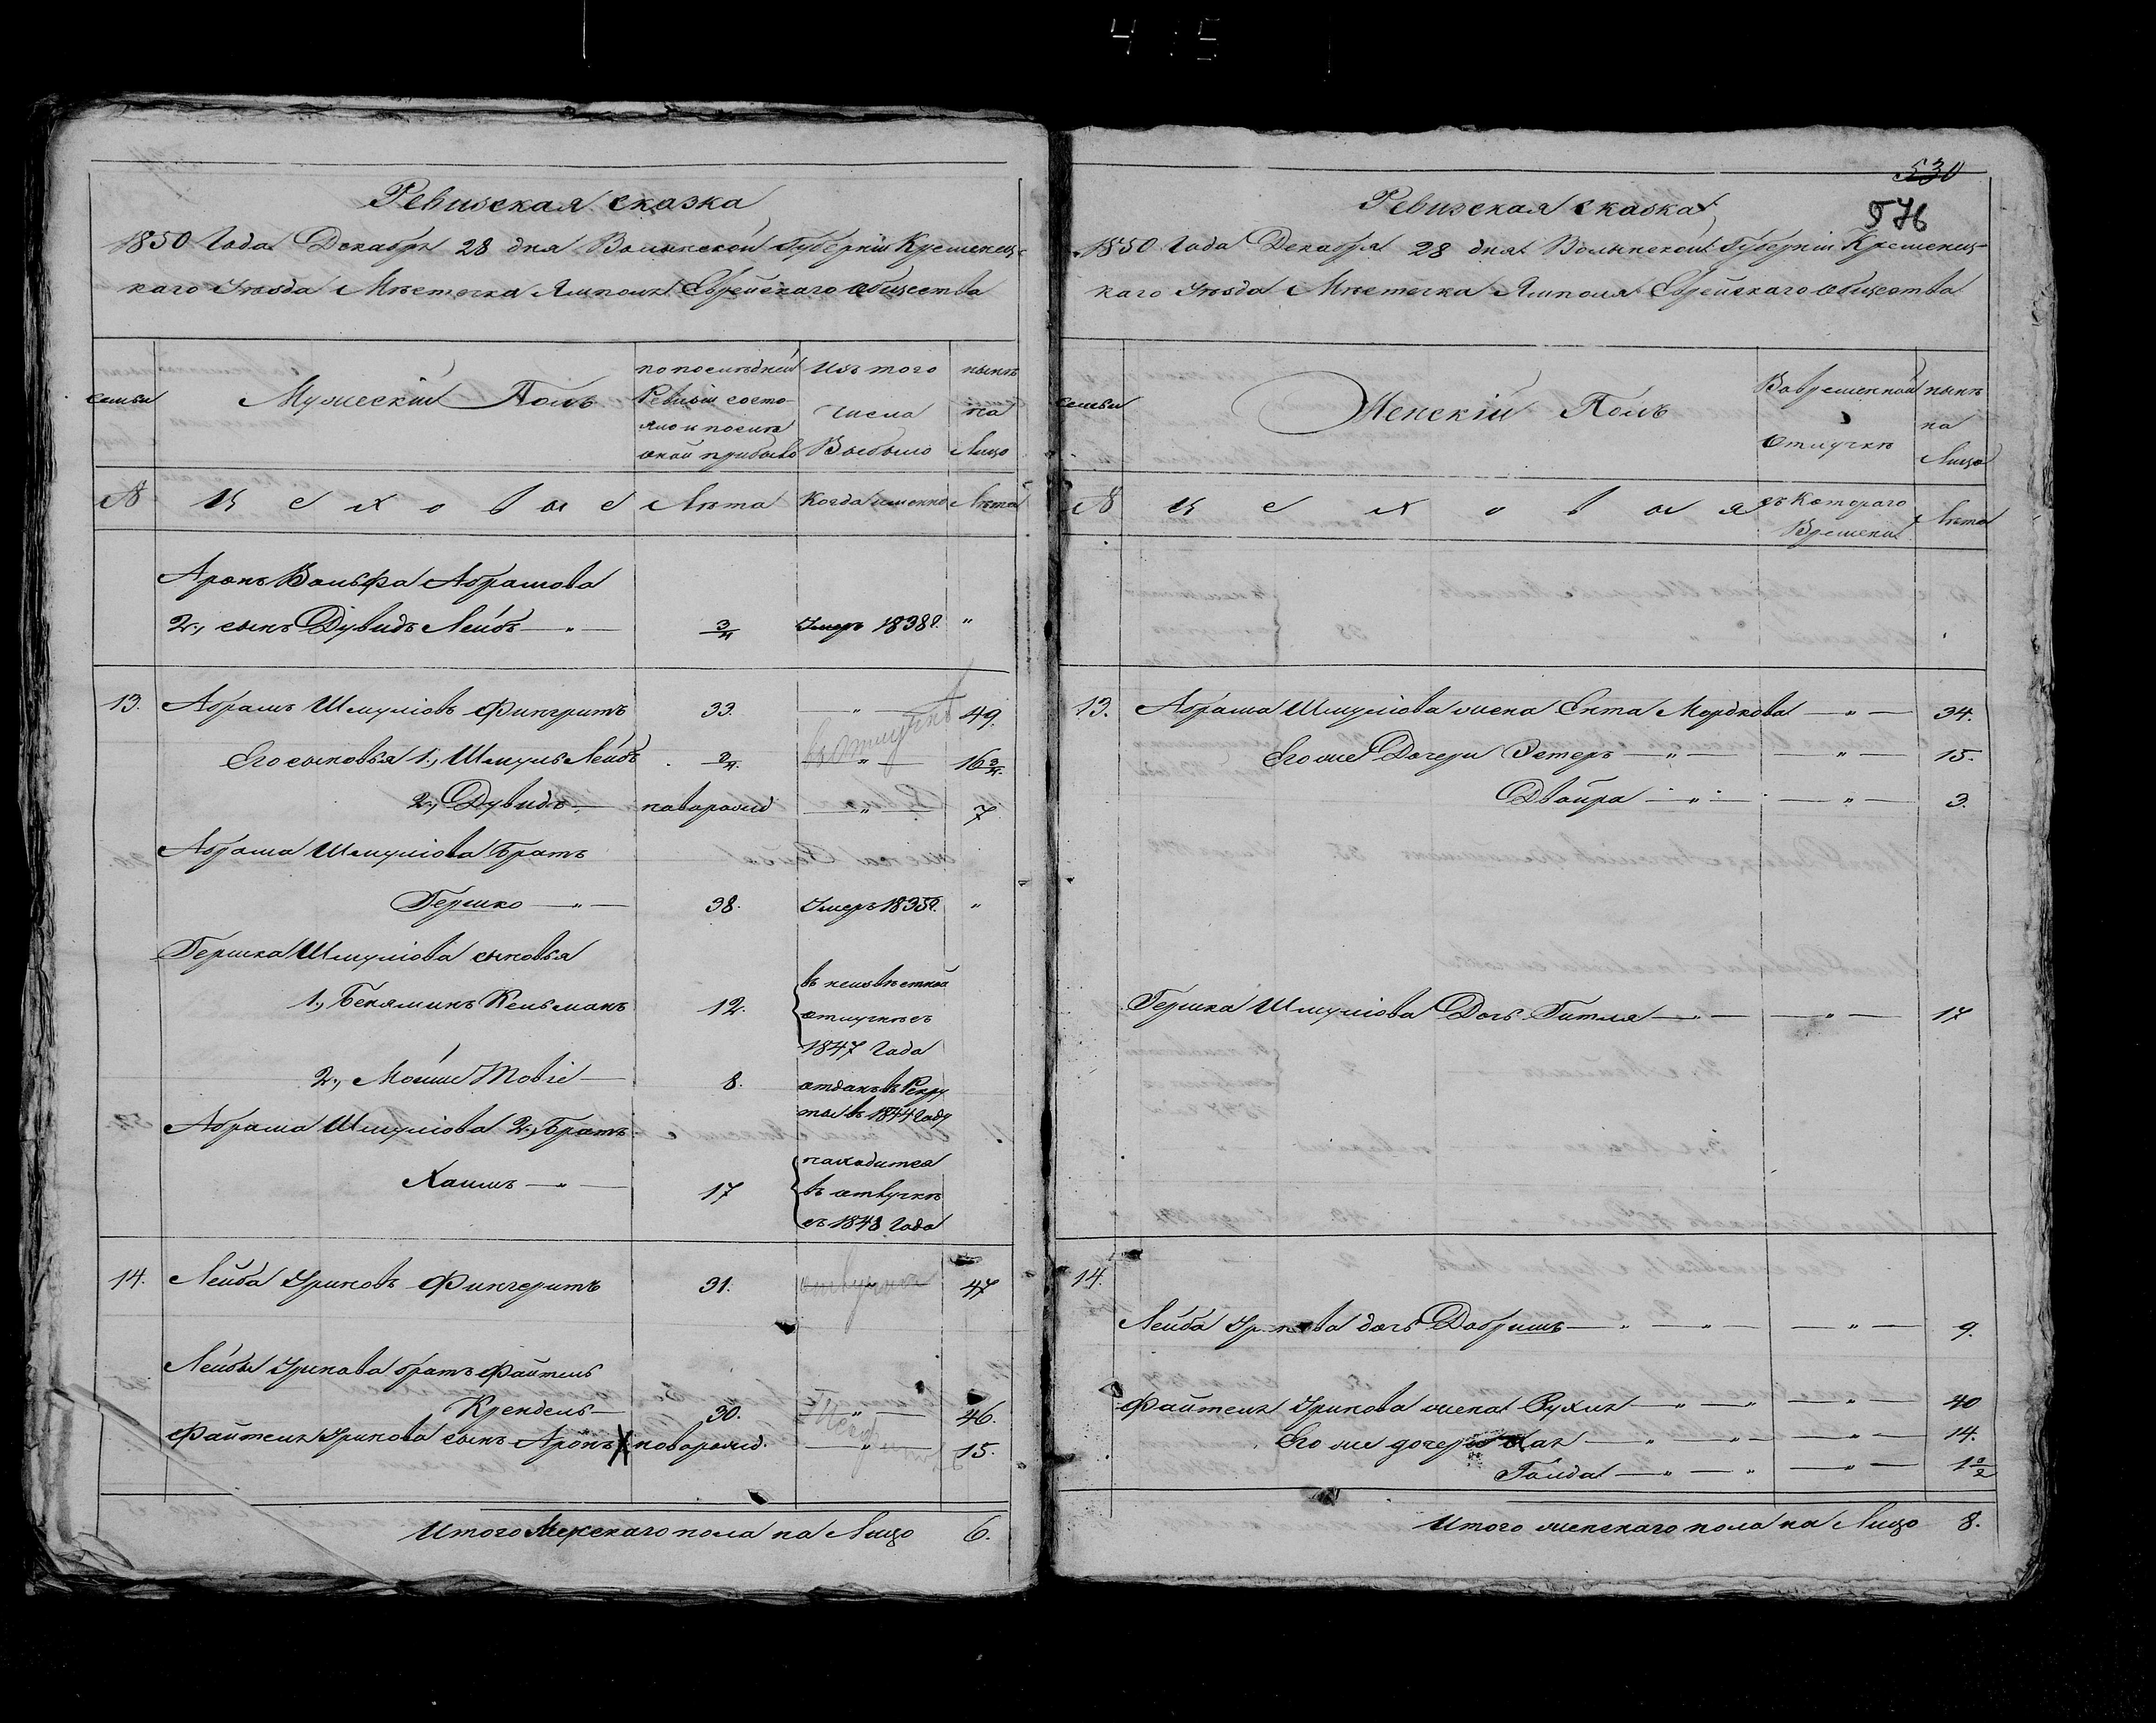 4 15
Ревизская сказка
1850 Года Декабря 28 дня Волынской Губернии Кременец-
каго Уѣзда Мѣстечка Ямполя Еврейскаго общества
семьи
Мужескій Полъ
по послѣдней
Ревизіи состо-
яло и послѣ
оной прибыло
Изъ того
числа
Выбыло
нынѣ
на
Лицо
№
Исковые
Лѣта
Когда именно
Лѣта
Аронъ Вольфа Абрамова
2., сынъ Дувидъ Лейбъ — " —
3/4
Умеръ 1838г.
"
13.
Абрамъ Шмуліовъ Фингрутъ
33.
— " —
49.
Его сыновья 1., Шмуль Лейбъ
2/4.
в отлучкѣ
— " —
16 3/4.
2., Дувидъ —
новорожд
— " —
7
Абрама Шмуліова Братъ
Гершко — " —
38.
Умеръ 1835г.
"
Гершка Шмуліова сыновья
1., Беняминъ Кельманъ
12.
въ неизвѣстной
отлучкѣ съ
1847 Года
2., Мошко Товіе —
8.
отданъ въ Рекру
ты въ 1844 Году
Абрама Шмуліова 2., Братъ
Хаимъ — " —
17
находится
въ отлучкѣ
съ 1848 Года
14.
Лейба Уриновъ Фингерутъ
31.
47
Лейбы Уринова братъ Файтель
Крендель —
30.
— " —
46.
Файтеля Уринова сынъ Аронъ
новорожд.
— " —
15.
Итого Мужскаго пола на Лицо
6.
530
576
Ревизская сказка
1850 Года Декабря 28 дня Волынской Губерніи Кременец-
каго Уѣзда Мѣстечка Ямполя Еврейскаго общества
семьи
Женскій Полъ
Во временной
отлучкѣ
нынѣ
на
Лицо
№
съ Котораго
Времени
Лѣта
13.
Абрама Шмуліова жена Ента Мордкова — " —
34.
Его же Дочери Эстеръ — " — — " —
15.
Двойра — " — — " —
3.
Гершка Шмуліова Дочь Гитля — " — — " —
17
14.
Лейба Уринова дочь Добришъ — " — " — — " —
9.
Файтеля Уринова жена Рухля — " — " — " —
40
Его же дочери Хая — " — " — " —
14.
Голда — " — " — " —
1 1/2
Итого женскаго пола на Лицо
8.